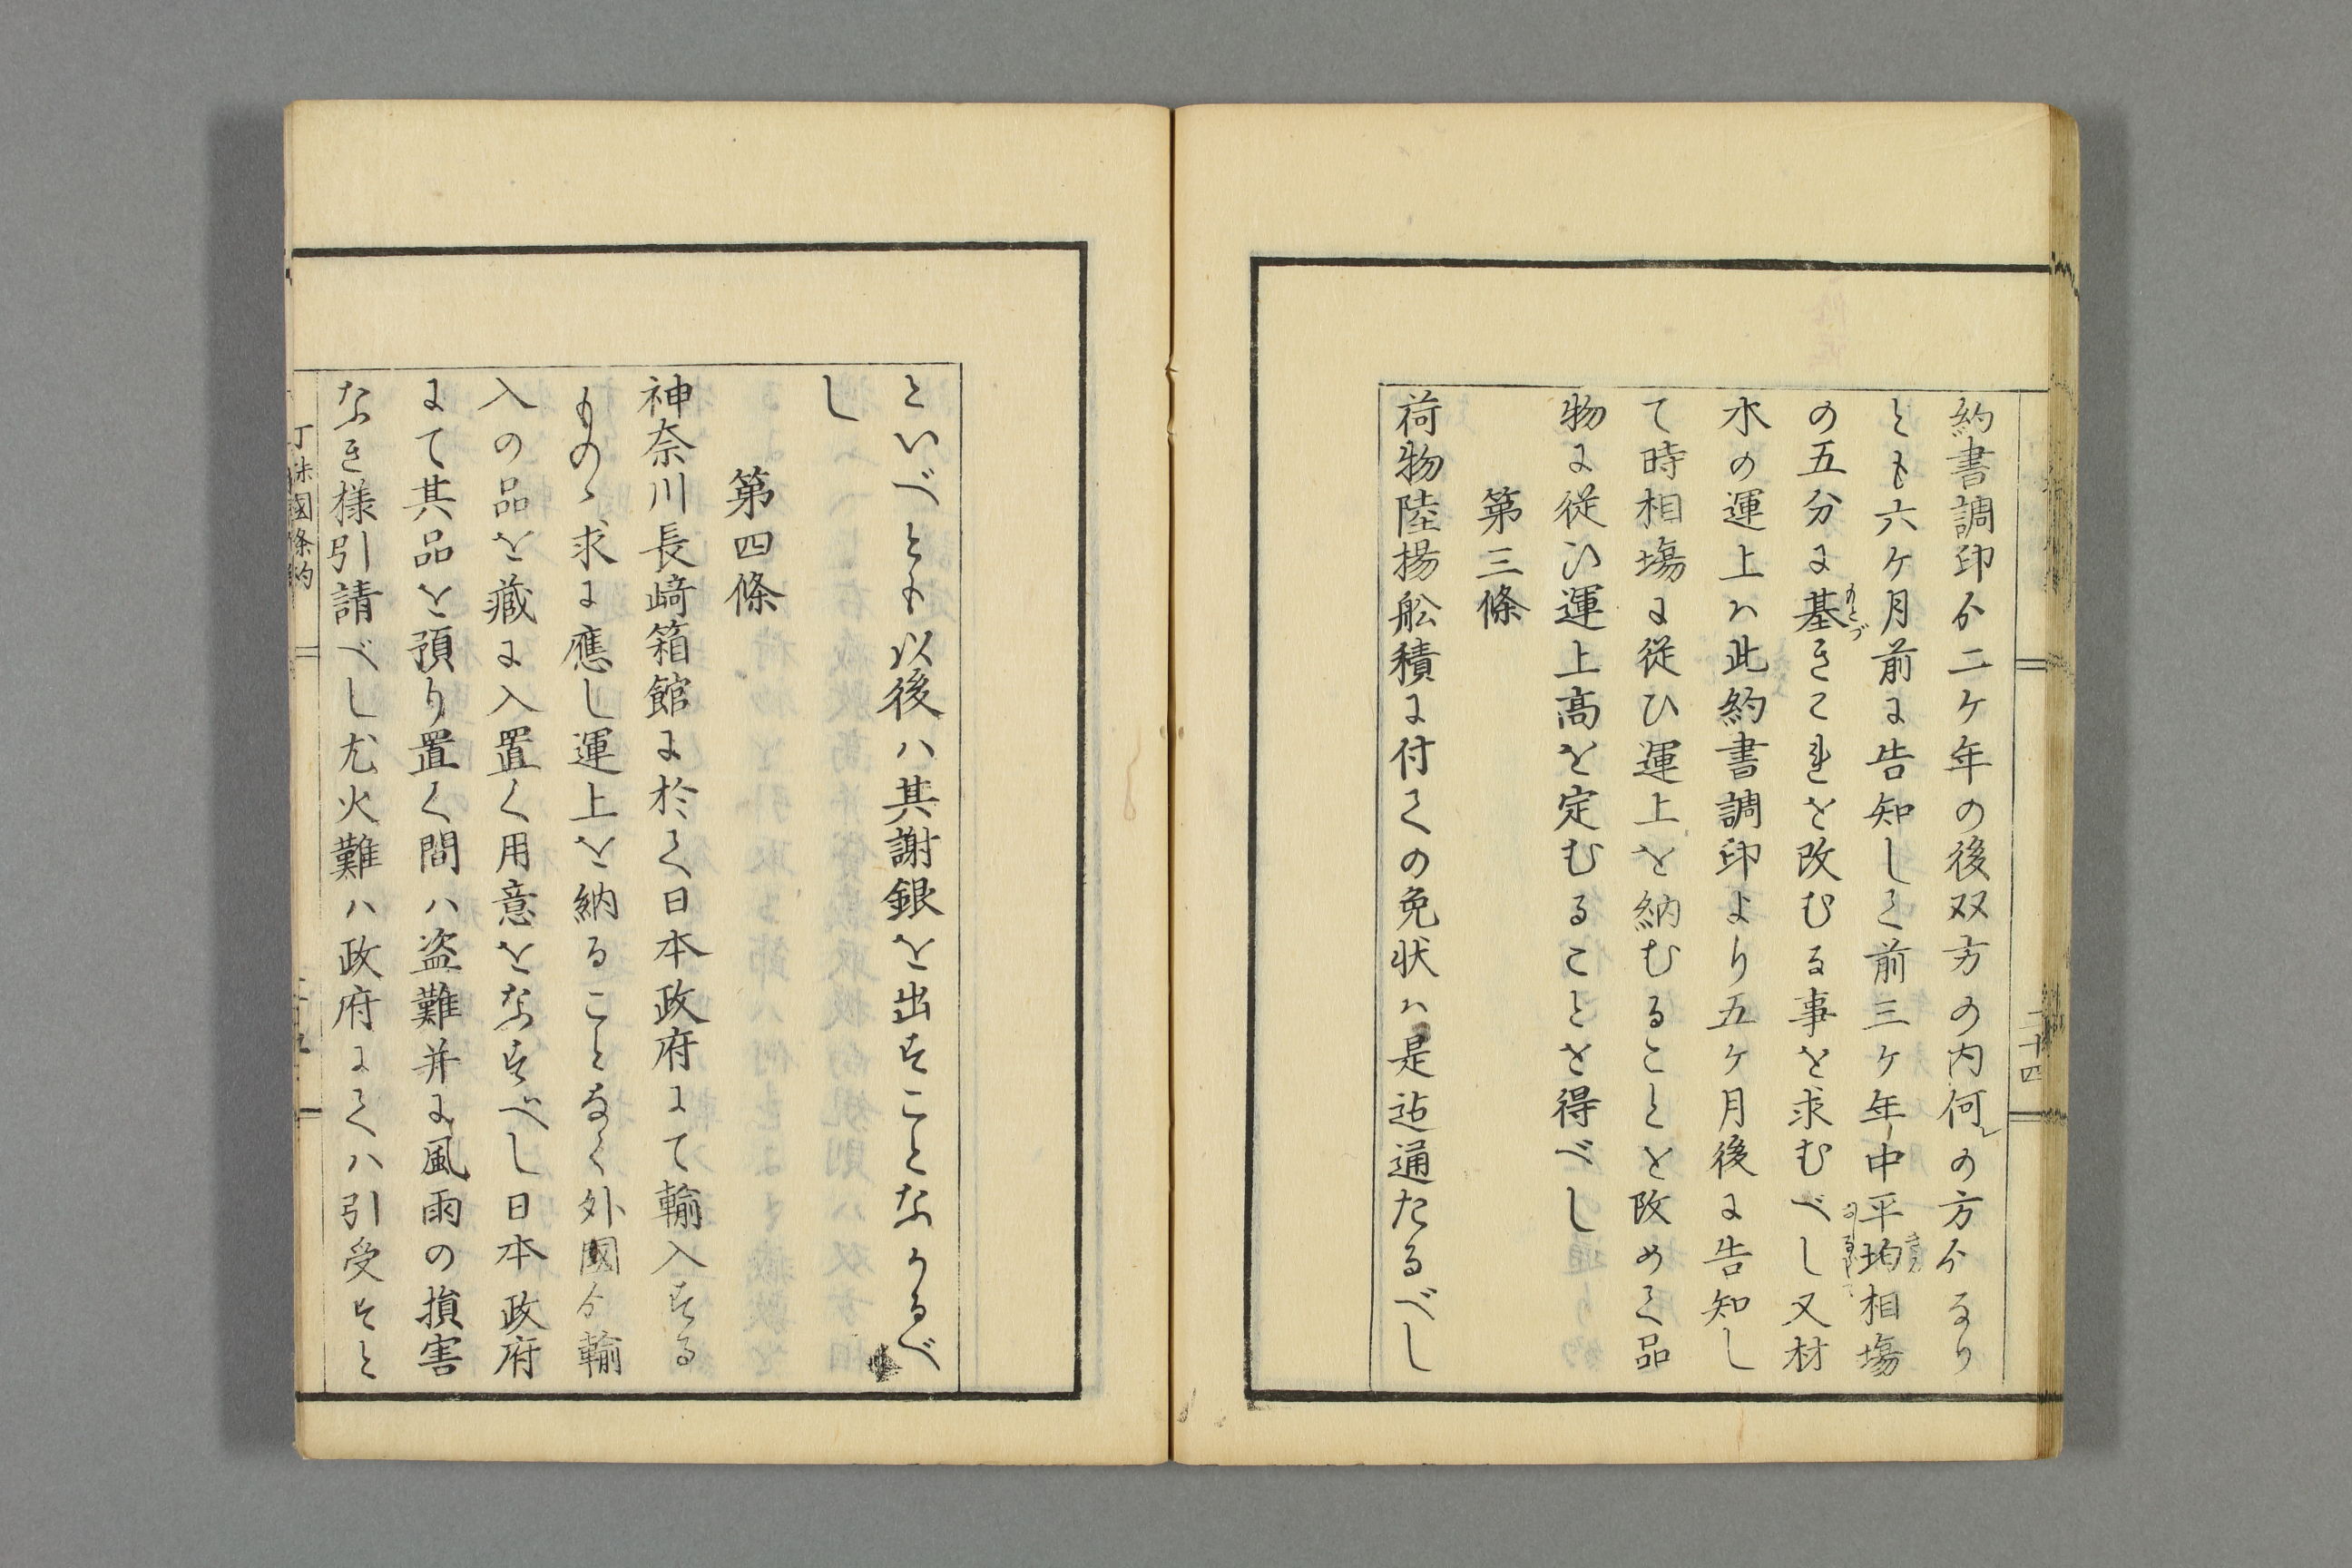 約書調印ゟ二ケ年の後双方の内何レの方ゟなり
とも六ケ月前に告知して前三ケ年中平均相塲
の五分に基きこれを改むる事を求むべし又材
もとづ
木の運上ハ此約書調印より五ケ月後に告知し
て時相塲に従ひ運上を納むることを改めて品
物に従ひ運上高を定むることを得べし
第三條
荷物陸揚舩積に付ての免状ハ是迠通たるべし
二十四
といへども以後ハ其謝銀を出すことなかるべ
し
第四條
神奈川長﨑箱館に於て日本政府にて輸入する
ものゝ求に應し運上を納ることなく外國ゟ輸
入の品を藏に入置く用意をなすべし日本政府
にて其品を預り置く間ハ盗難并に風雨の損害
なき様引請べし尤火難ハ政府にてハ引受ずと
國條約